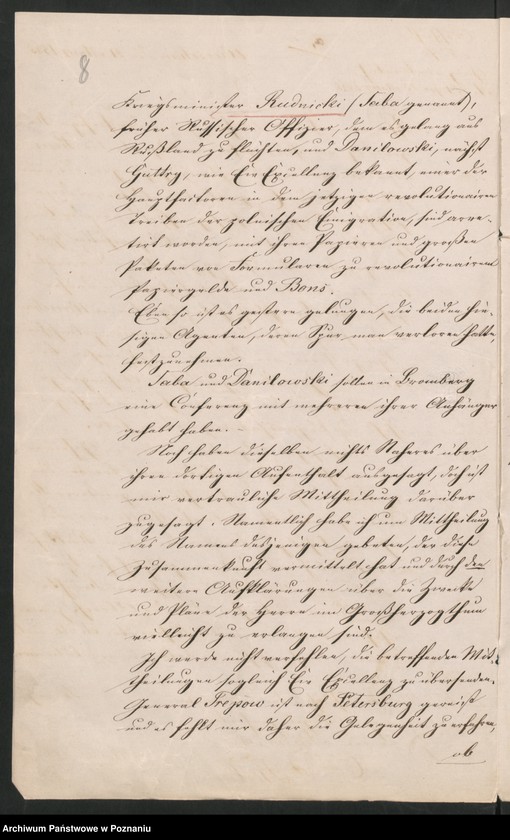 8
Kriegsminister Rudnicki (Saba genannt),
früher Russischer Offizier, dem es gelang aus
Rußland zu flüchten, und Danilowski, nächst
Guttry, wie Ew Excellenz bekannt, einer der
Hauptfactoren in dem jetzigen revolutionairen
Treiben der polnischen Emigration, sind arre-
tirt worden, mit ihren Papieren und großen
Paketen von Formularen zu revolutionairem
Papiergelde und Bons.
Eben so ist es gestern gelungen, die beiden hie-
sigen Agenten, deren Spur man verloren hatte,
festzunehmen.
Saba und Danilowski sollen in Bromberg
eine Conferenz mit mehreren ihrer Anhänger
gehabt haben.
Noch haben dieselben nichts Näheres über
ihren dortigen Aufenthalt ausgesagt, doch ist
mir vertrauliche Mittheilung darüber
zugesagt. Namentlich habe ich um Mittheilung
des Namens desjenigen gebeten, der diese
Zusammenkunft vermittelt hat und durch den
weitere Aufklärungen über die Zwecke
und Pläne der Herren im Großherzogthum
vielleicht zu erlangen sind.
Ich werde nicht verfehlen, die betreffenden Mit-
theilungen sogleich Ew Excellenz zu übersenden.
General Trepow ist nach Petersburg gereist
und es fehlt mir daher die Gelegenheit zu erfahren,
ob
Archiwum Państwowe w Poznaniu